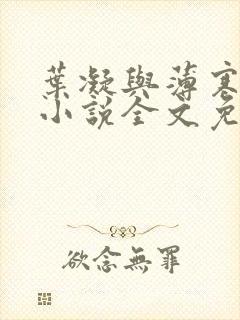 葉凝與薄寒
小說全文免
欲念無罪